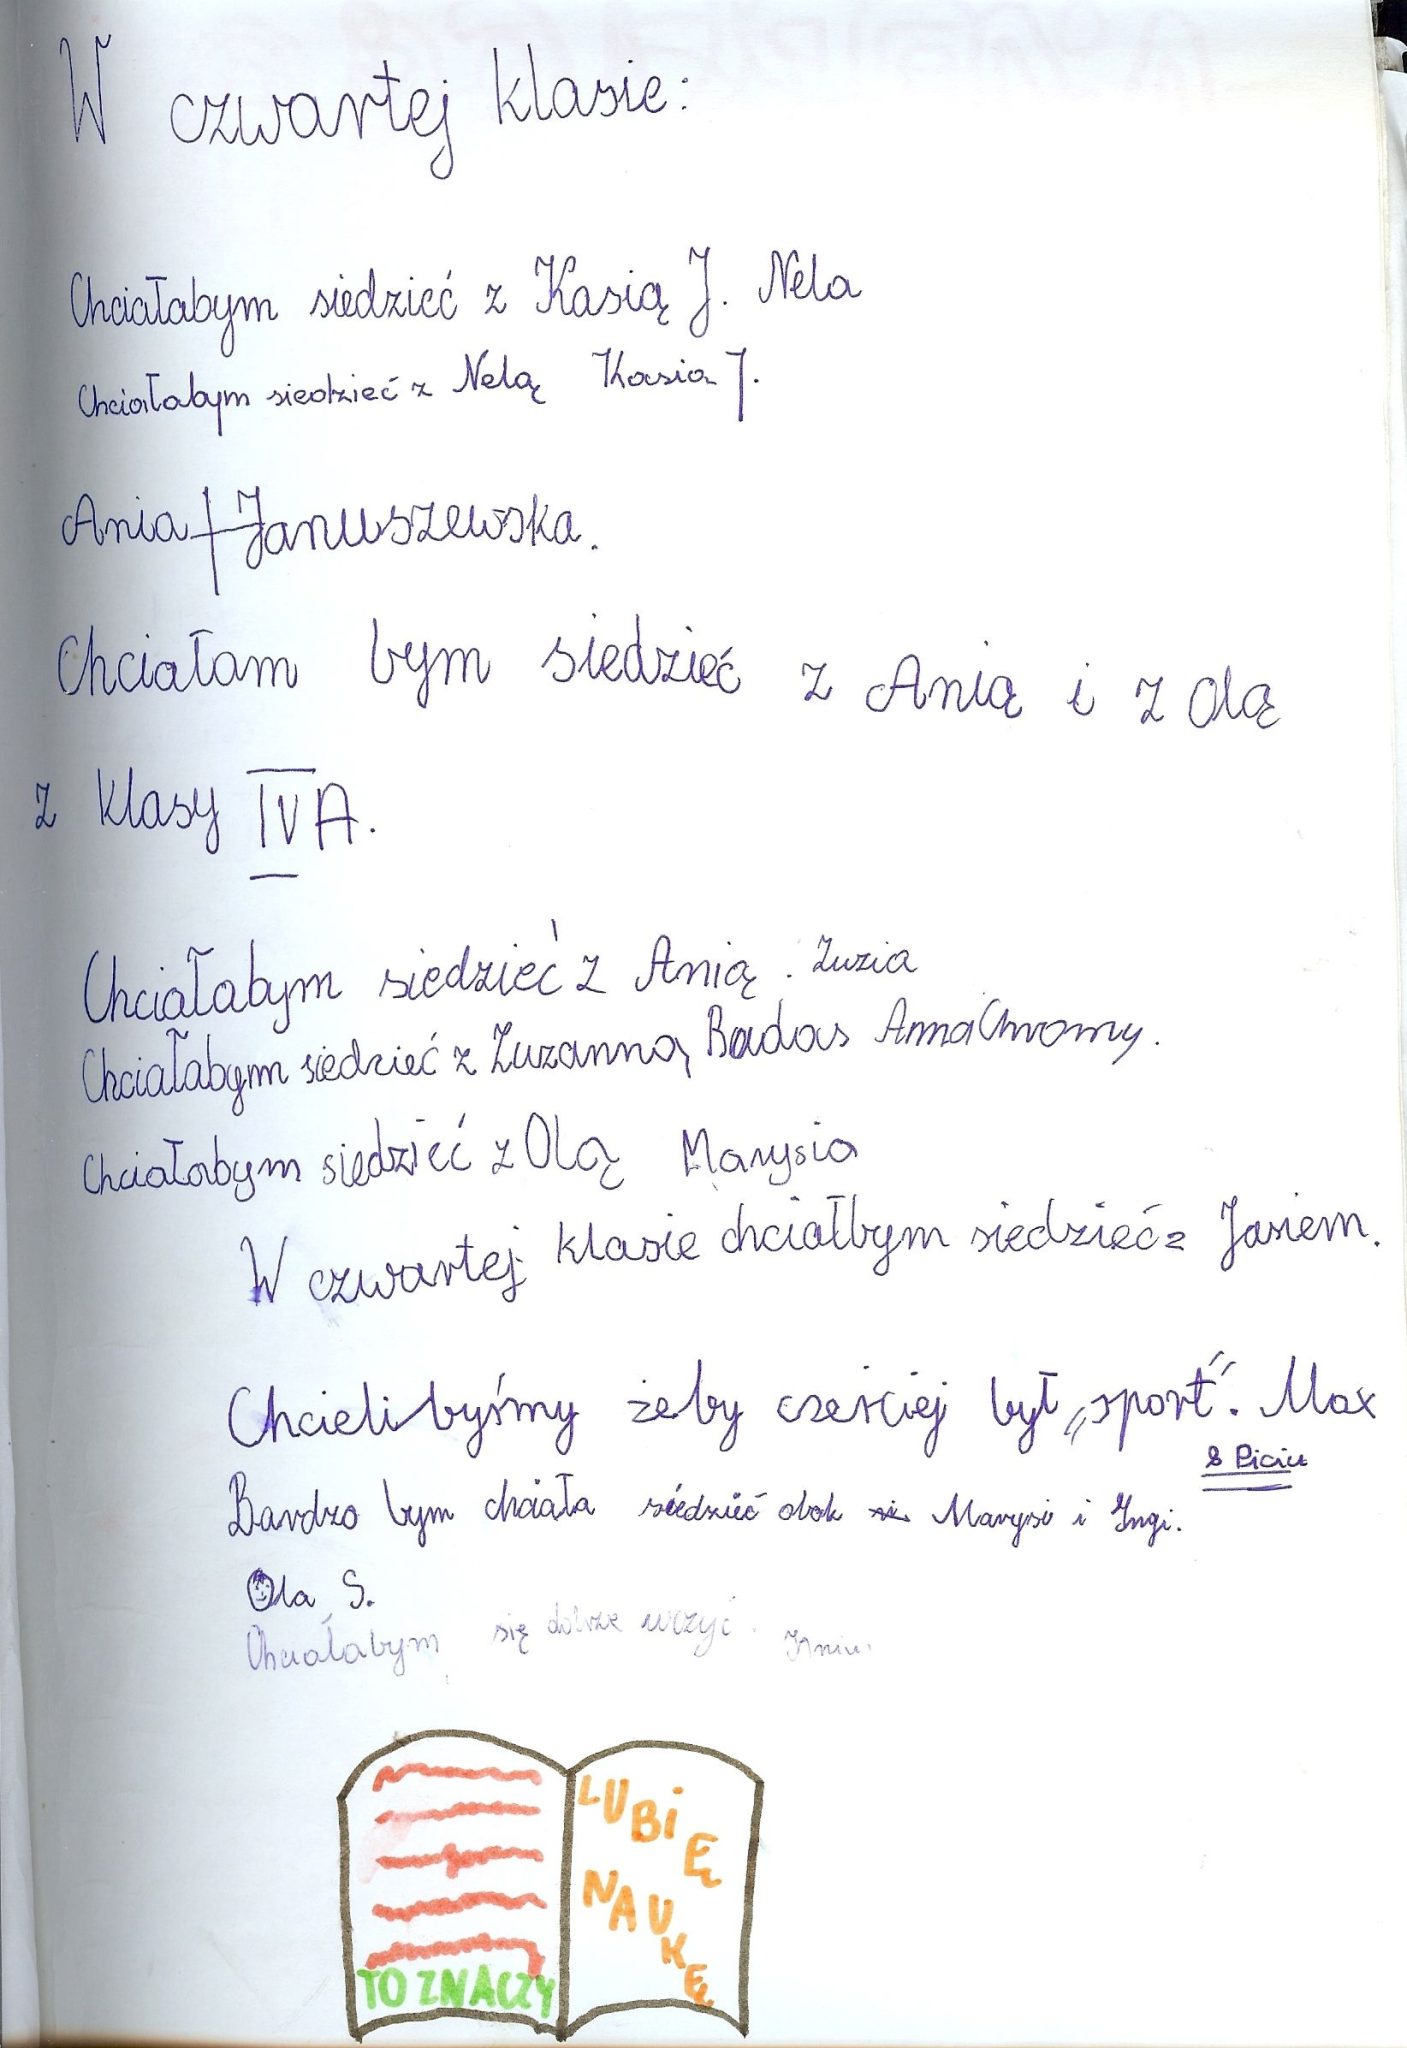 W czwartej klasie:
Chciałabym siedzieć z Kasią J. Nela
Chciałabym siedzieć z Nelą Kasia J.
Ania Januszewska.
Chciałam bym siedzieć z Anią i z Olą
z klasy IVA.
Chciałabym siedzieć z Anią. Zuzia
Chciałabym siedzieć z Zuzanną Badas Anna Chromy.
Chciałabym siedzieć z Olą Marysia
W czwartej klasie chciałbym siedzieć z Jasiem.
Chcieli byśmy żeby cześciej był „sport". Max
& Piciu
Bardzo bym chciała siedzieć obok Marysi i Ingi.
Ola S.
Chciałabym się dobrze uczyć.
TO ZNACZY
LUBIĘ
NAUKĘ